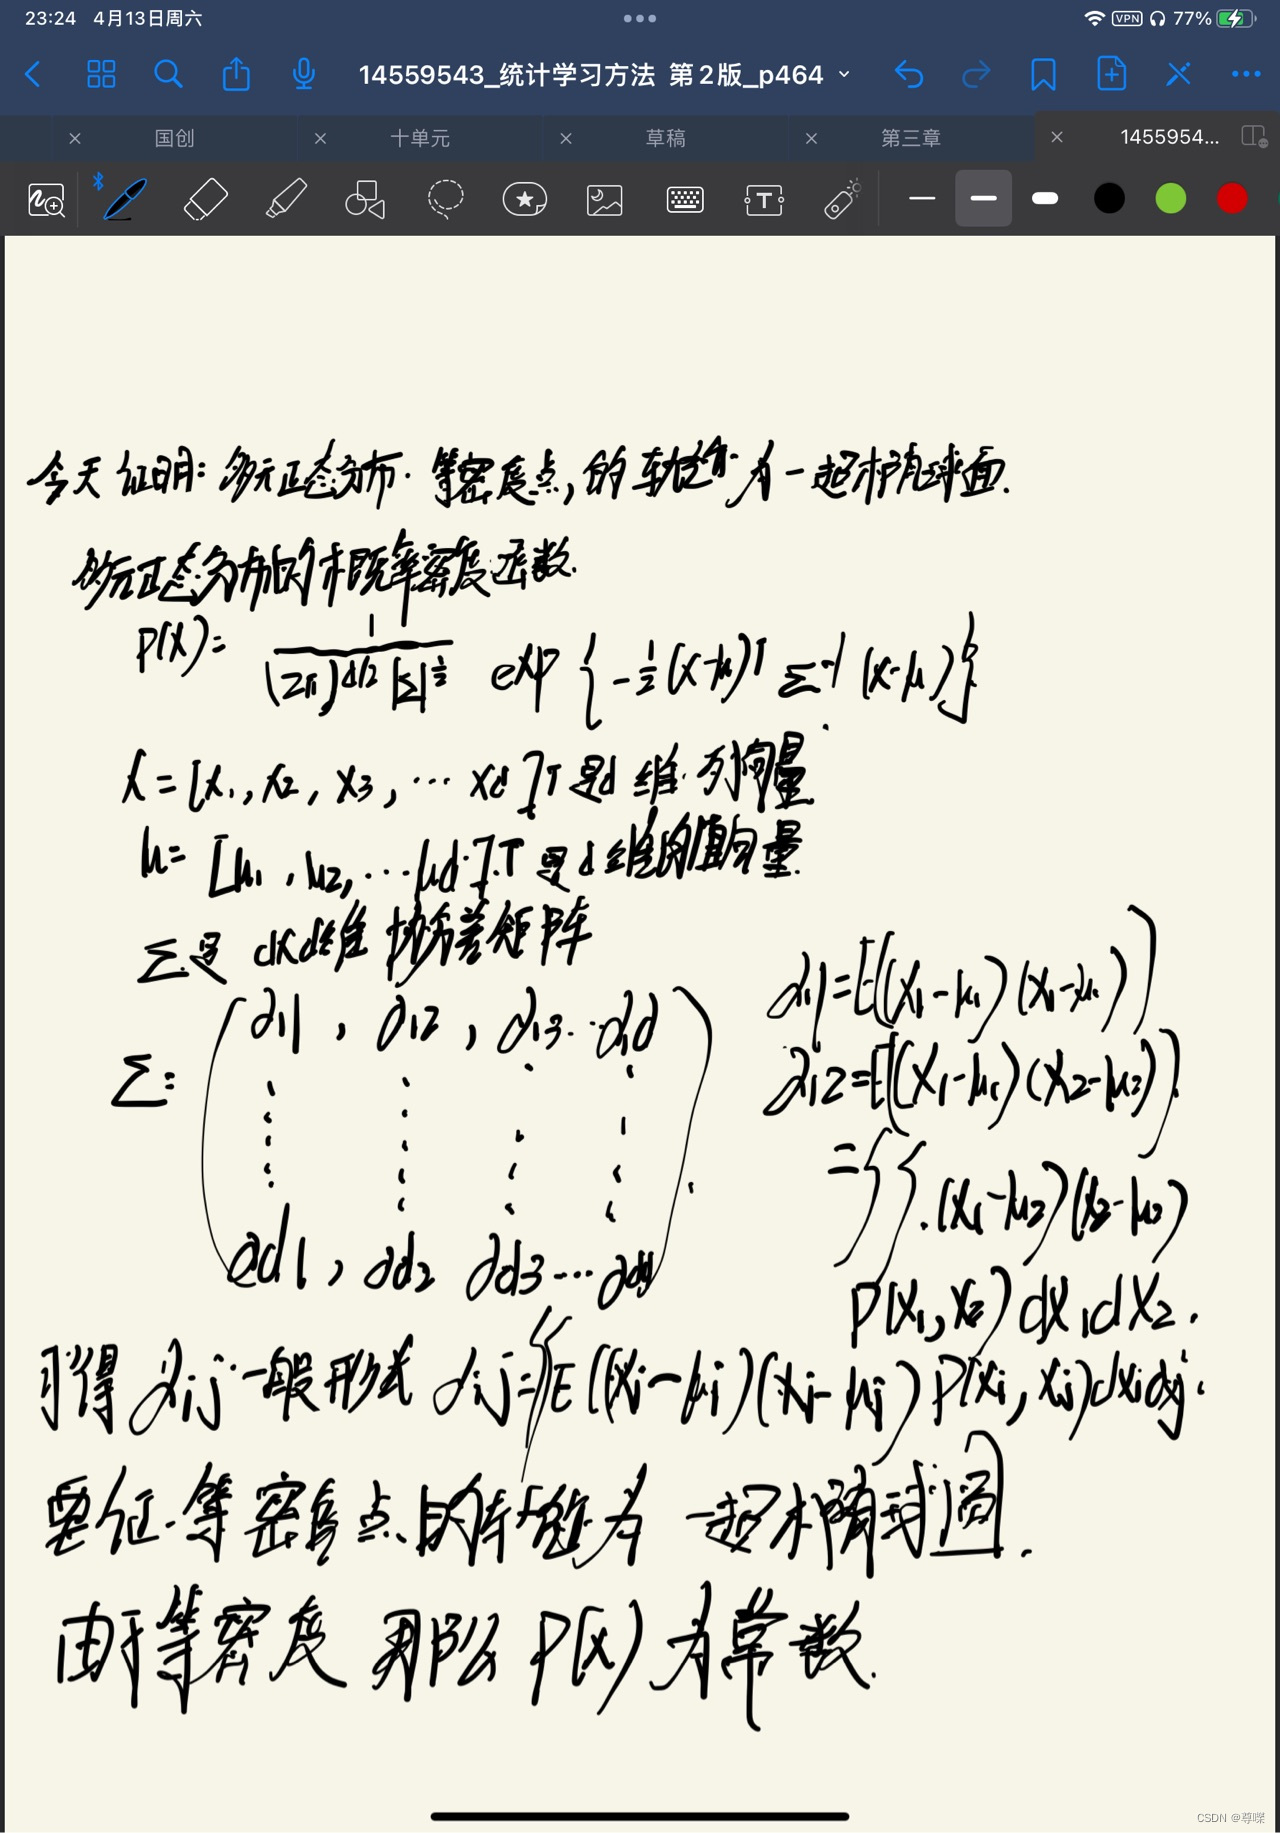 23:24 4月13日周六
VPN 77%
14559543_统计学习方法 第2版_p464
国创 十单元 草稿 第三章 1455954...
今天证明:多元正态分布.等密度点,的轨迹为一超椭球面.
多元正态分布的概率密度函数.
P(X)= 1/((2π)^{d/2} |Σ|^{1/2}) exp{-1/2(x-μ)^T Σ^{-1} (x-μ)}
X=[x1,x2,x3,…xd]T是d维列向量
μ=[μ1,μ2,…μd].T是d维均值向量.
Σ是 d×d维协方差矩阵
Σ= (∂11, ∂12, ∂13…∂1d
∂d1, ∂d2 ∂d3…∂dd)
∂11=E((x1-μ1)(x1-μ1))
∂12=E[(x1-μ1)(x2-μ2)]
=∫∫.(x1-μ2)(x2-μ2)
P(x1,x2)dx1dx2.
可得∂ij一般形式 ∂ij=∫∫E((xi-μi)(xj-μj)P(xi,xj)dxidxj.
要证.等密度点的轨迹为一超椭球面.
由于等密度 那么P(x)为常数.
CSDN @尊嘫